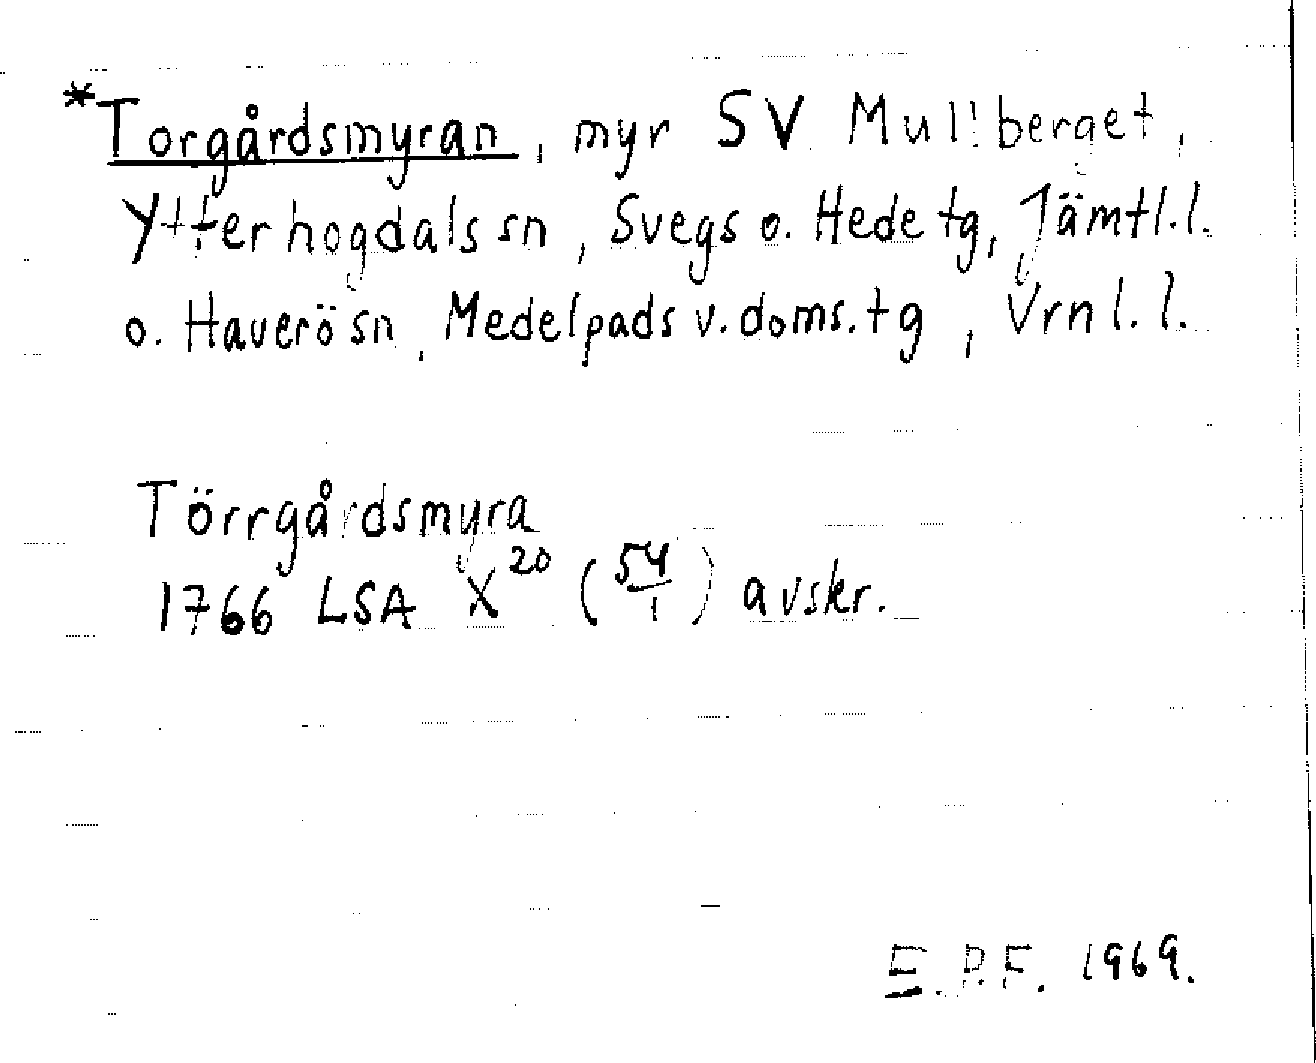 *Torgårdsmyran, myr SV Mullberget,
Ytterhogdals sn, Svegs o. Hede tg, Jämtl.l.
o. Haverö sn, Medelpads v. doms. tg, Vrnl. l.
Törrgårdsmyra
1766 LSA X²⁰ (54/1) avskr.
E.P.F. 1969.